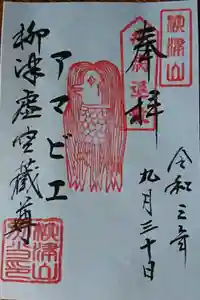 令和三年
九月三十日
奉拝
アマビエ
柳津虚空蔵尊